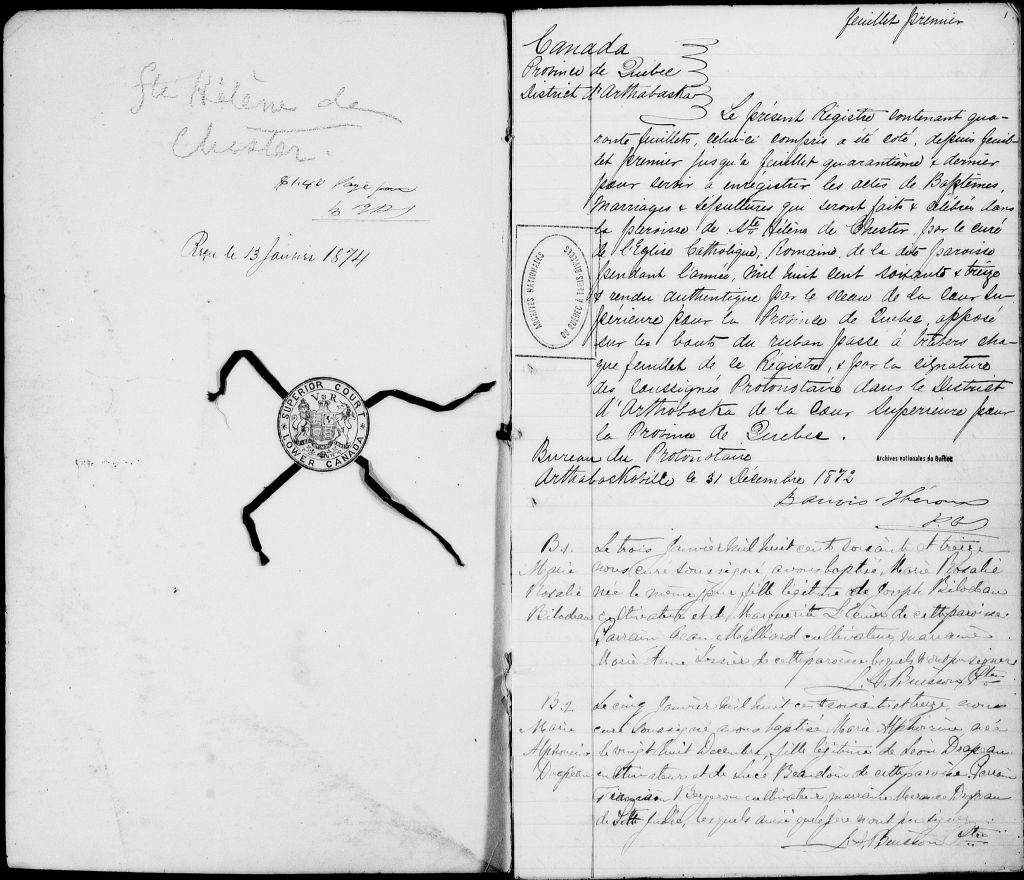 Ste Hélène de
Chester.
$1.40 Payé pour
Reçu le 13 Janvier 1874
SUPERIOR COURT
V R
LOWER CANADA
feuillet premier
1
Canada
Province de Québec
District d'Arthabaska
Le présent Régistre contenant qua-
rante feuillets, celui-ci compris a été coté, depuis feuil-
let premier jusqu'à feuillet quarantième & dernier
pour servir à enrégistrer les actes de Baptêmes,
Marriages & Sépultures qui seront faits & célébrés dans
la paroisse de Ste Hélène de Chester, par le curé
de l'Eglise Catholique, Romaine, de la dite paroisse
pendant l'année, Mil huit cent soixante & treize
& rendu authentique par le sceau de la Cour Su-
périeure pour la Province de Quebec, apposé
sur les bouts du ruban passé à travers cha-
que feuillet de ce Régistre, & par la signature
des soussignés Protonotaire dans le District
d'Arthabaska de la Cour Supérieure pour
la Province de Quebec.
ARCHIVES NATIONALES
DU QUEBEC A TROIS-RIVIERES
Bureau du Protonotaire
Archives nationales du Québec
Arthabaskaville ce 31 Décembre 1872
Barwis & Théroux
B 1.
Marie
Rosalie
Bilodeau
Le trois Janvier Mil huit cent soixante et treize
nous curé soussigné avons baptisé, Marie Rosalie
née le même jour, fille légitime de Joseph Bilodeau
cultivateur et de Marguerite de cette paroisse.
Parrain Jean cultivateur, marraine
Marie Anne de cette paroisse lesquels n'ont pu signer
L. A. Buisson Ptre
B. 2
Marie
Alphonsine
Drapeau
Le cinq Janvier Mil huit cent soixante et treize, nous
curé soussigné avons baptisé Marie Alphonsine née
le vingt huit Decembre, fille légitime de Léon Drapeau
cultivateur et de Luce Beaudoin de cette paroisse. Parrain
Bergeron cultivateur, marraine Drapeau
de Ste Julie, lesquels ainsi que le père n'ont pu signer.
L. A. Buisson Ptre